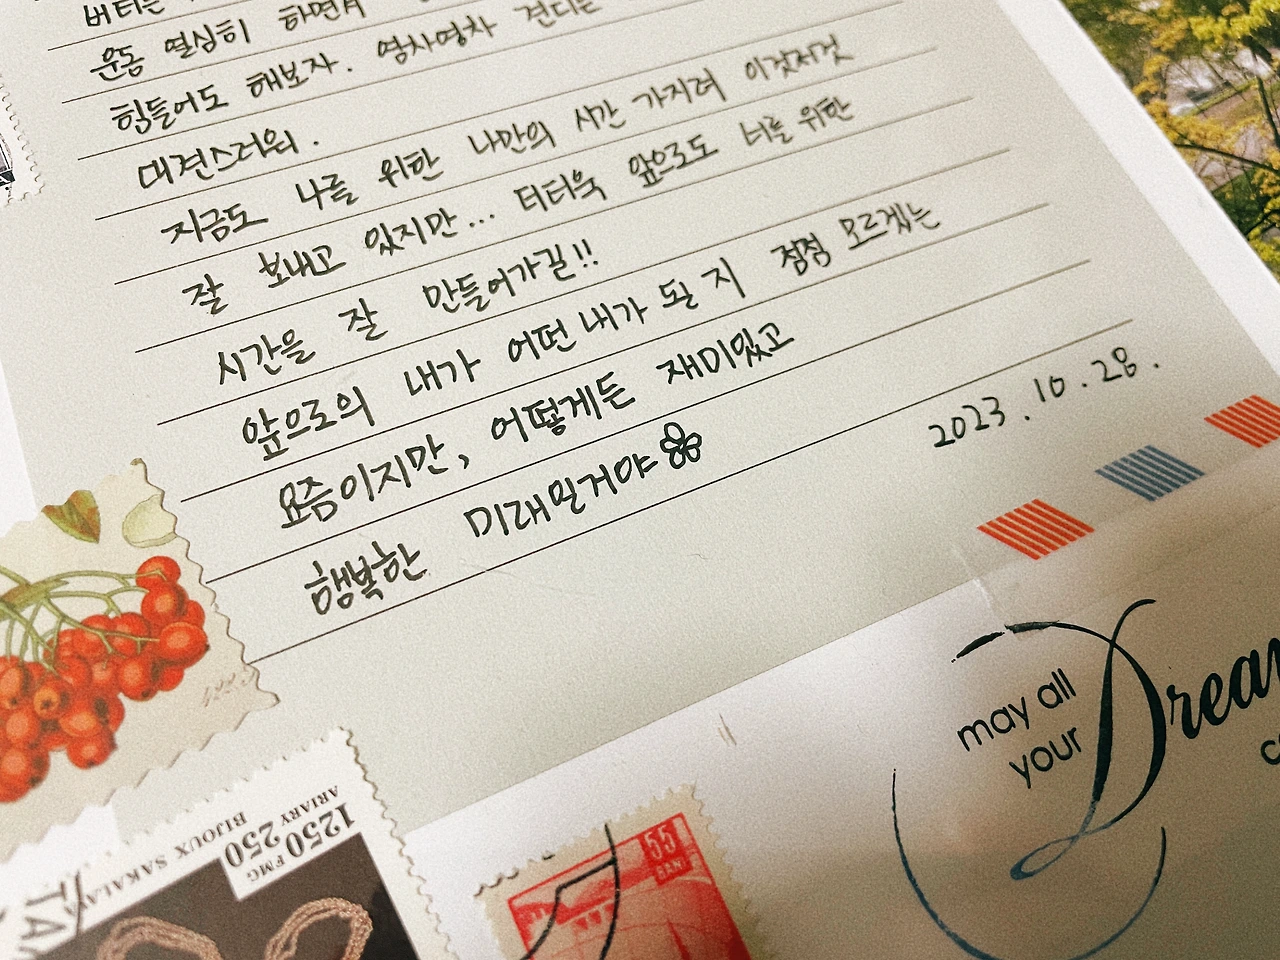 버티는
운동 열심히 하면서
힘들어도 해보자. 영차영차 견디는
대견스러워.
지금도 나를 위한 나만의 시간 가지려 이것저것
잘 보내고 있지만... 터터욱 앞으로도 너를 위한
시간을 잘 만들어가길!!
앞으로의 내가 어떤 내가 될 지 점점 모르겠는
요즘이지만, 어떻게든 재미있고
행복한 미래일거야
2023.10.28.
may all
your Dream
1250 FMG
250 ARIARY
BIJOUX SAKALA
55
BANI